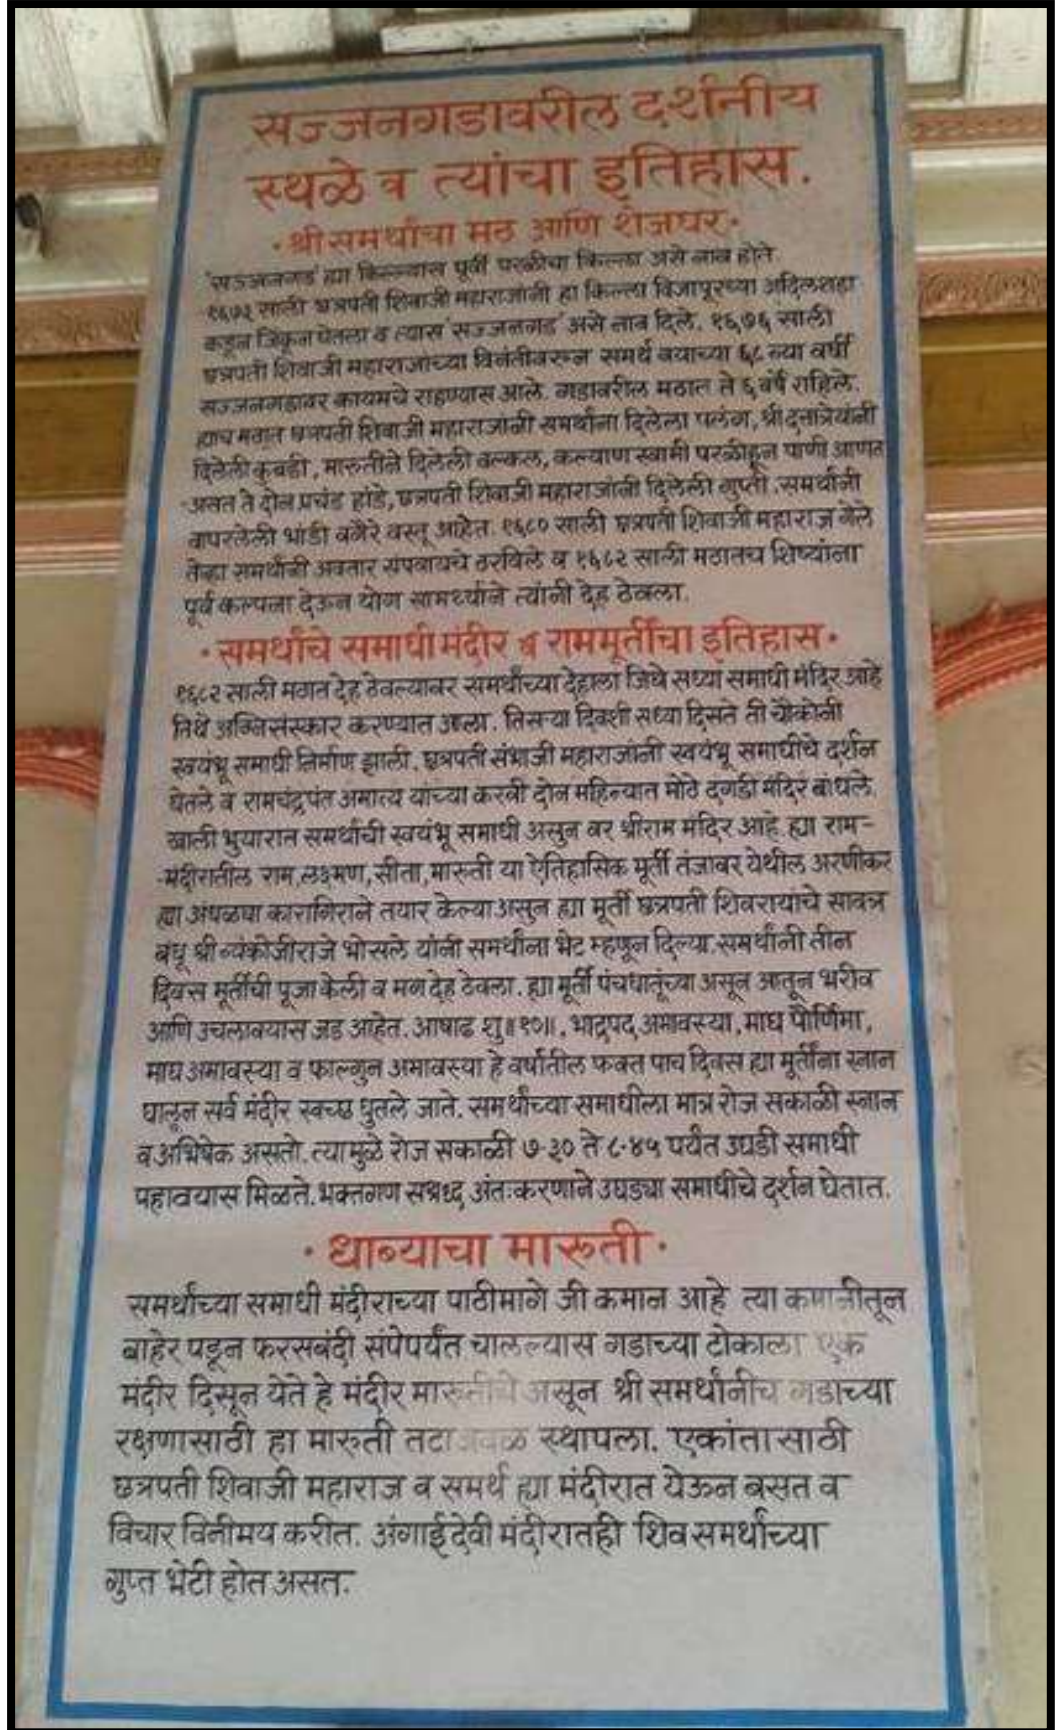 सज्जनगडावरील दर्शनीय
स्थळे व त्यांचा इतिहास.
· श्री समर्थांचा मठ आणि शेजघर ·
'सज्जनगड' ह्या किल्ल्यास पूर्वी परळीचा किल्ला असे नाव होते.
१६७३ साली छत्रपती शिवाजी महाराजांनी हा किल्ला विजापूरच्या अदिलशहा
कडून जिंकून घेतला व त्यास 'सज्जनगड' असे नाव दिले. १६७६ साली
छत्रपती शिवाजी महाराजांच्या विनंतीवरून समर्थ वयाच्या ६८ व्या वर्षी
सज्जनगडावर कायमचे राहण्यास आले. गडावरील मठात ते ६ वर्षे राहिले.
ह्याच मठात छत्रपती शिवाजी महाराजांनी समर्थांना दिलेला पलंग, श्री दत्तात्रेयांनी
दिलेली कुबडी, मारुतीने दिलेली वल्कल, कल्याण स्वामी परळीहून पाणी आणत
असत ते दोन प्रचंड हांडे, छत्रपती शिवाजी महाराजांनी दिलेली गुप्ती, समर्थांनी
वापरलेली भांडी वगैरे वस्तू आहेत. १६८० साली छत्रपती शिवाजी महाराज गेले
तेव्हा समर्थांनी अवतार संपवायचे ठरविले व १६८२ साली मठातच शिष्यांना
पूर्व कल्पना देऊन योग सामर्थ्याने त्यांनी देह ठेवला.
· समर्थांचे समाधी मंदीर व राममूर्तींचा इतिहास ·
१६८२ साली मठात देह ठेवल्यावर समर्थांच्या देहाला जिथे सध्या समाधी मंदिर आहे
तिथे अग्निसंस्कार करण्यात आला. तिसऱ्या दिवशी सध्या दिसते ती चौकोनी
स्वयंभू समाधी निर्माण झाली. छत्रपती संभाजी महाराजांनी स्वयंभू समाधीचे दर्शन
घेतले व रामचंद्रपंत अमात्य यांच्या करवी दोन महिन्यात मोठे दगडी मंदिर बांधले.
खाली भुयारात समर्थांची स्वयंभू समाधी असुन वर श्रीराम मंदिर आहे. ह्या राम-
-मंदीरातील राम, लक्ष्मण, सीता, मारुती या ऐतिहासिक मूर्ती तंजावर येथील अरणीकर
ह्या अंधळ्या कारागिराने तयार केल्या असुन ह्या मूर्ती छत्रपती शिवरायांचे सावत्र
बंधू श्री व्यंकोजीराजे भोसले यांनी समर्थांना भेट म्हणून दिल्या. समर्थांनी तीन
दिवस मूर्तींची पूजा केली व मग देह ठेवला. ह्या मूर्ती पंचधातूंच्या असून आतून भरीव
आणि उचलावयास जड आहेत. आषाढ शु॥१०॥, भाद्रपद अमावस्या, माघ पौर्णिमा,
माघ अमावस्या व फाल्गुन अमावस्या हे वर्षातील फक्त पाच दिवस ह्या मूर्तींना स्नान
घालून सर्व मंदीर स्वच्छ धुतले जाते. समर्थांच्या समाधीला मात्र रोज सकाळी स्नान
व अभिषेक असतो. त्यामुळे रोज सकाळी ७-३० ते ८-४५ पर्यंत उघडी समाधी
पहावयास मिळते. भक्तगण सश्रध्द अंतःकरणाने उघड्या समाधीचे दर्शन घेतात.
· धाब्याचा मारूती ·
समर्थांच्या समाधी मंदीराच्या पाठीमागे जी कमान आहे त्या कमानीतून
बाहेर पडून फरसबंदी संपेपर्यंत चालल्यास गडाच्या टोकाला एक
मंदीर दिसून येते हे मंदीर मारूतीचे असून श्री समर्थांनीच गडाच्या
रक्षणासाठी हा मारुती तटाजवळ स्थापला. एकांतासाठी
छत्रपती शिवाजी महाराज व समर्थ ह्या मंदीरात येऊन बसत व
विचार विनीमय करीत. अंगाई देवी मंदीरातही शिव समर्थांच्या
गुप्त भेटी होत असत.